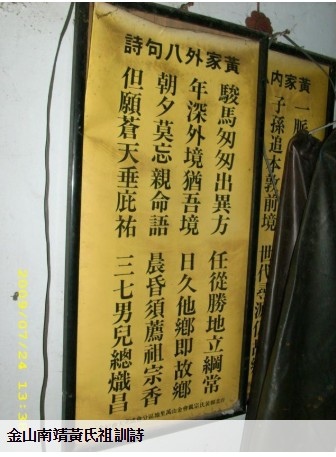 黃家外八句詩
駿馬匆匆出異方 任從勝地立綱常
年深外境猶吾境 日久他鄉即故鄉
朝夕莫忘親命語 晨昏須薦祖宗香
但願蒼天垂庇祐 三七男兒總熾昌
黃家內八
一脈
子孫追本敦前境 世代
2009/07/24 13:3
金山南靖黃氏祖訓詩